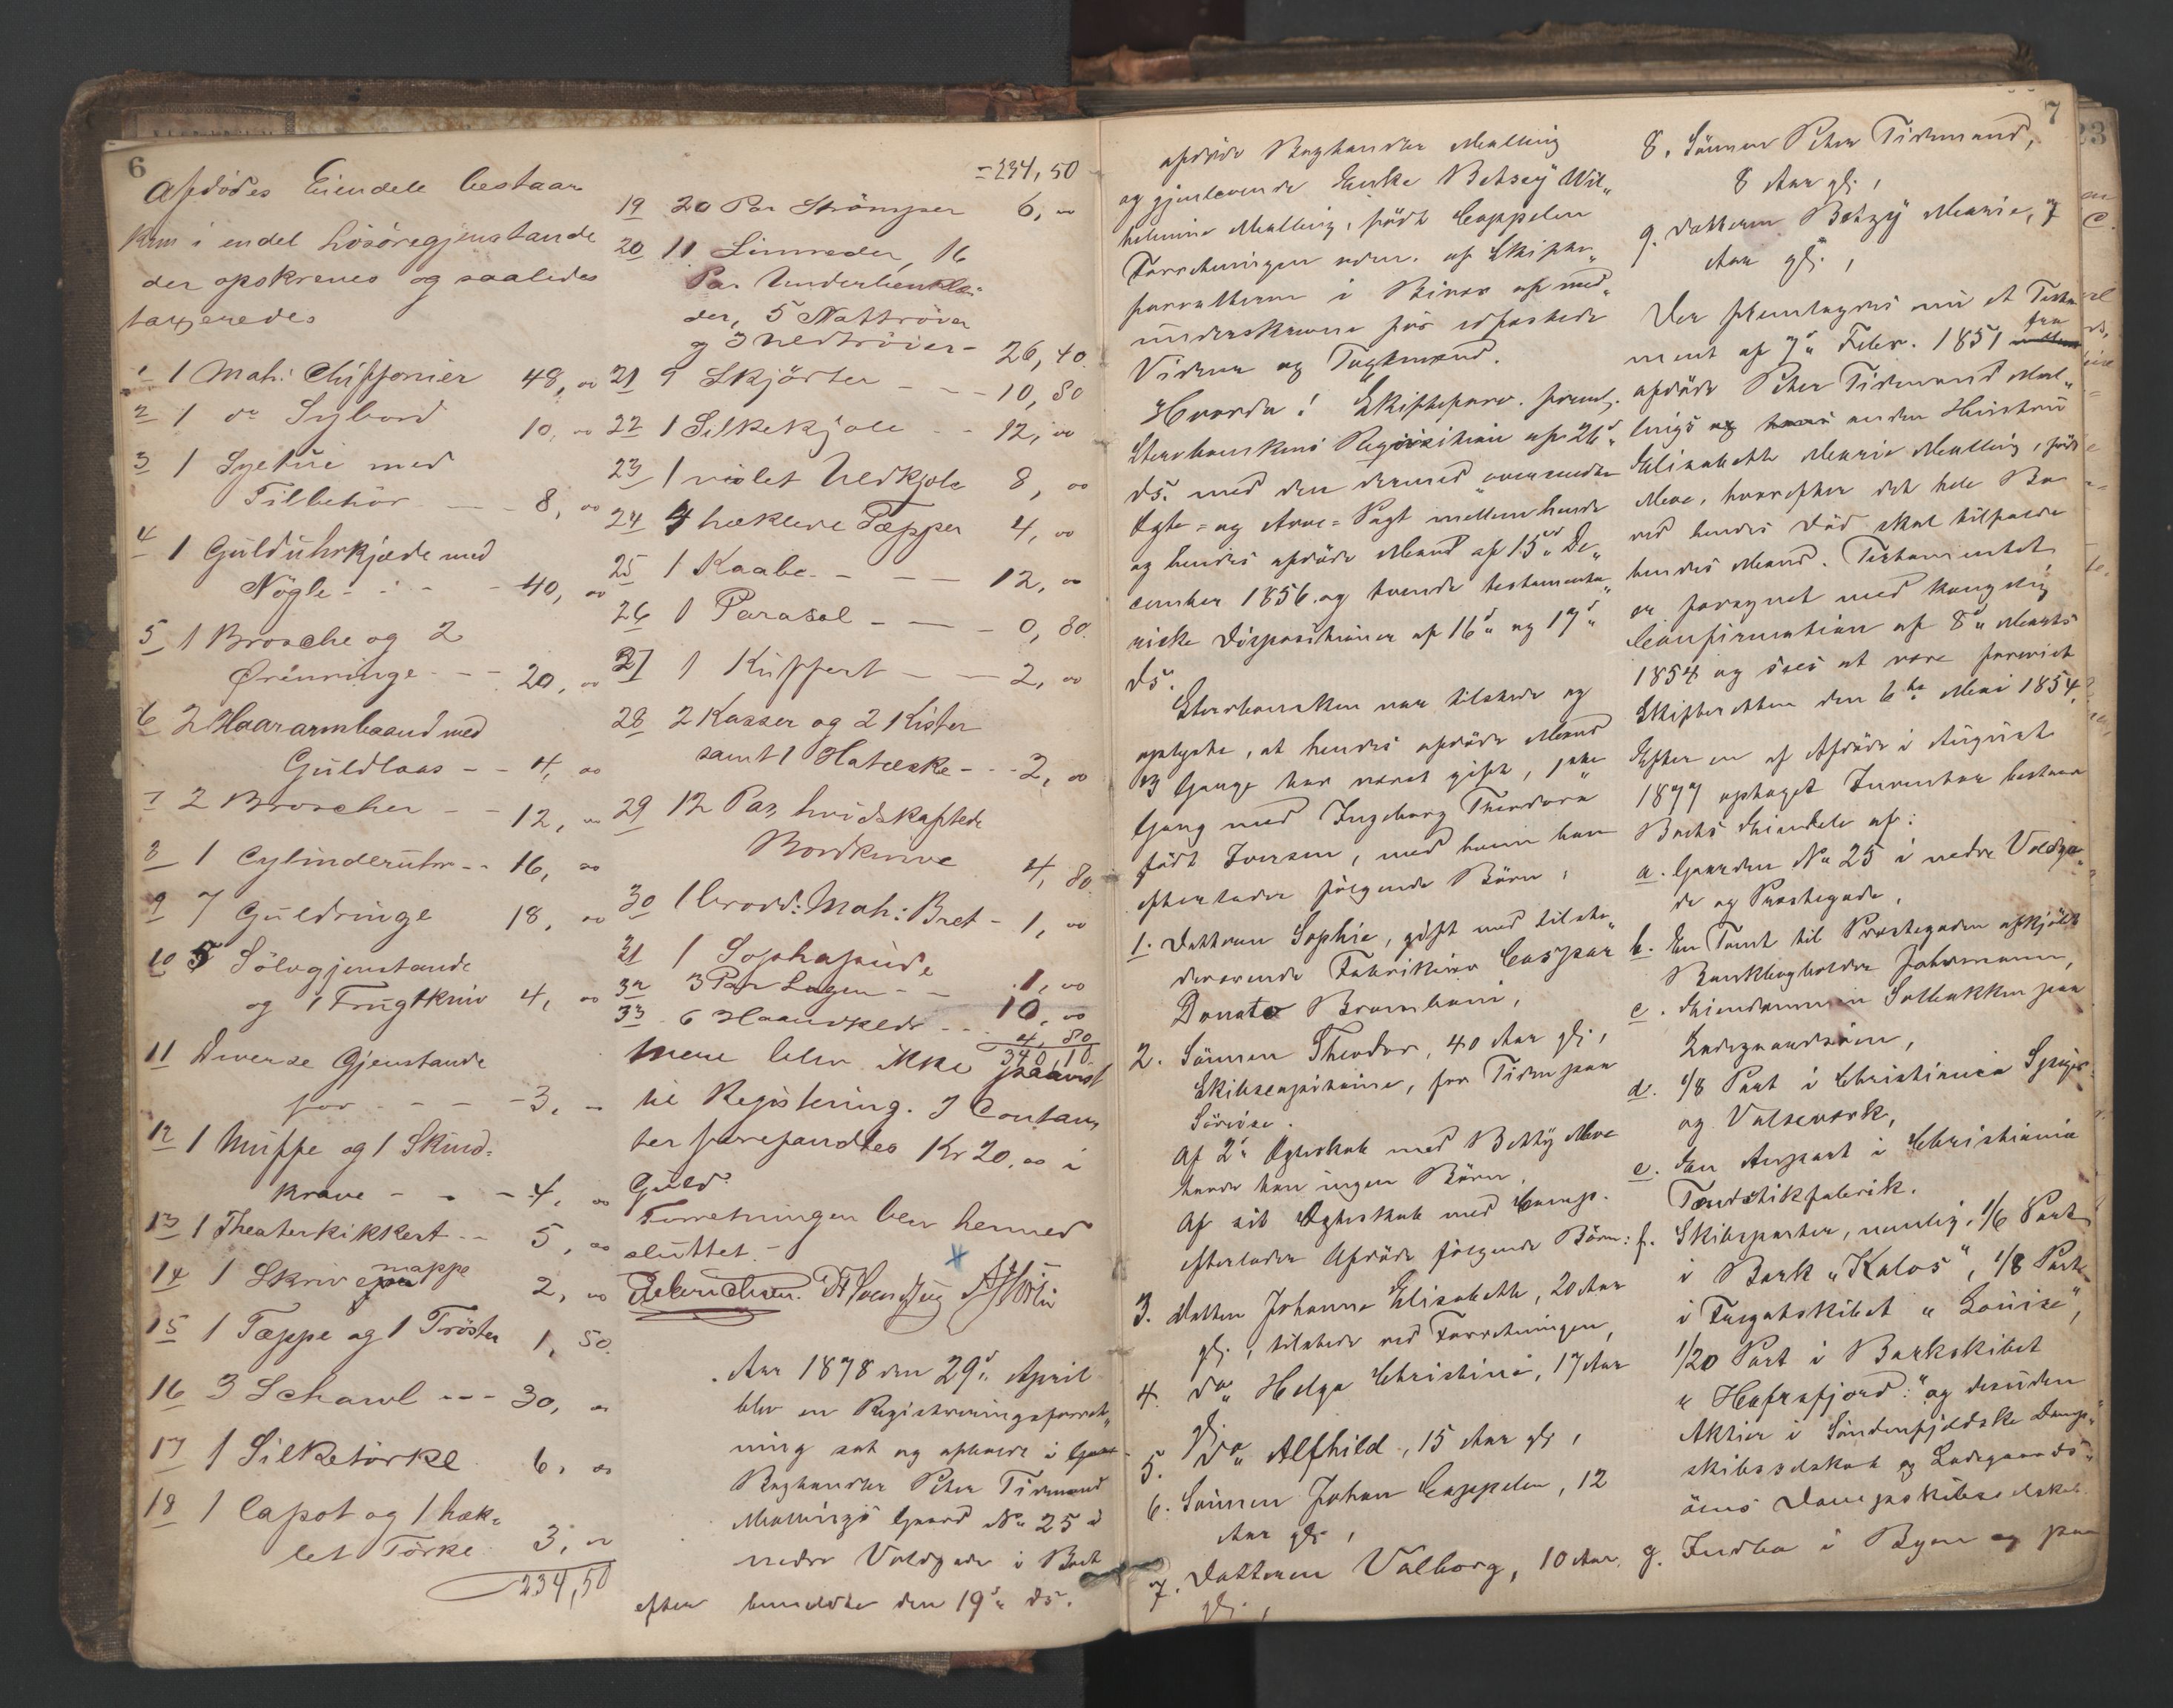 6
Afdödes Eiendele bestaar
kun i endel Lösöregjenstande
der opskreves og saaledes
taxeredes
1 1 Mah: Chiffonier 48, 00
2 1 do Sybord 10, 00
3 1 Syetui med
Tilbehör - - 8, 00
4 1 Gulduhrkjæde med
Nögle - - - 40, 00
5 1 Brosche og 2
Örenringe - - 20, 00
6 2 Haararmbaand med
Guldlaas - - 4, 00
7 2 Broscher - - 12, 00
8 1 Cylinderuhr - - 16, 00
9 7 Guldringe 18, 00
10 5 Sölvgjenstande
og 1 Frugtkniv 4, 00
11 Diverse Gjenstande
for - - - - 3, -
12 1 Muffe og 1 Skind-
krave - - - 4, 00
13 1 Theaterkikkert - - 5, 00
14 1 Skrivemappe 2, 00
15 1 Tæppe og 1 Tröster 1, 50
16 3 Schawl - - - 30, 00
17 1 Silketörkl 6, 00
18 1 Capot og 1 hæk-
let Törkl 3, 00
234,50
- 234,50
19 20 Par Strömper 6, 00
20 11 Linneder, 16
Par Underbenklæ-
der, 5 Nattröier
og 3 Uldtröier - 26, 40
21 9 Skjörter - - - 10, 80
22 1 Silkekjole - - 12, 00
23 1 violet Uldkjole 8, 00
24 4 hæklede Tæpper 4, 00
25 1 Kaabe - - - 12, 00
26 1 Parasol - - - 0, 80
27 1 Kuffert - - - 2, 00
28 2 Kasser og 2 Kister
samt 1 Hatæske - - - 2, 00
29 12 Par hvidskaftede
Bordknive 4, 80
30 1 brod: Mah: Bret - 1, 00
31 1 Sophapude 1, 00
32 3 Par Lagen - - 10, 00
33 6 Haandklæder - - - 4, 80
340,10
Mere blev ikke paavist
til Registering. I Contan-
ter forefandtes Kr 20,00 i
Guld.
Forretningen blev hermed
sluttet. -
Aar 1878 den 29d April
blev en Registreringsforret-
ning sat og afholdt i
Boghandler Peter Tidemand
Mallings Gaard No 25 i
nedre Voldgade i Bo
efter den 19d ds.
7
afdöde Boghandler Malling
og gjenlevende Enke Betsey Wil-
helmine Malling, födt Cappelen
Forretningen adm. af Skifte-
forvalteren i Bivær af med-
underskrevne för edfæstede
Vidner og Taxtmænd.
Hvorda! Skifteforv. freml.
Sterboenkens Reqvisition af 26d
ds. med den dermed oversendte
Ægte- og Arve-Pagt mellem hende
og hendes afdöde Mand af 15d De-
cember 1856 og tvende testamenta-
riske Dispositioner af 16d og 17d
ds.
Sterboenken var tilstede og
oplyste, at hendes afdöde Mand
3 Gange har været gift, 1ste
Gang med Ingeborg Theodora
födt Iversen, med hvem han
efterlader fölgende Börn:
1. Datteren Sophie, gift med tilste-
deværende Fabrikeier Caspar
Donato Brambani,
2. Sönnen Theodor, 40 Aar gl.,
Skibscapitaine, for Tiden paa
Söreise.
Af 2d Ægteskab med Betty Moe
havde han ingen Börn.
Af sit Ægteskab med Comp.
efterlader Afdöde fölgende Börn:
3. Datter Johanne Elisabeth, 20 Aar
gl., tilstede ved Forretningen,
4. do Helga Christine, 17 Aar
gl.,
5. do Alfhild, 15 Aar gl.,
6. Sönnen Johan Cappelen, 12
Aar gl.,
7. Datteren Valborg, 10 Aar
gl.,
8. Sönnen Peter Tidemand,
8 Aar gl.,
9. Datteren Betzy Marie, 7
Aar gl.,
Der fremlagdes nu et Testa-
ment af 7d Febr. 1851 fra
afdöde Peter Tidemand Mal-
lings og hans anden Hustru
Elisabeth Marie Malling, födt
Moe, hvorefter det hele Bo
ved hendes Död skal tilfalde
hendes Mand. Testamentet
er forsynet med kongelig
Confirmation af 8d Marts
1854 og sees at være forevist
Skifteretten den 6te Mai 1854,
Efter en af Afdöde i August
1877 optaget Inventar bestaar
Boets Eiendele af:
a. Gaarden No 25 i nedre Voldga-
de og Præstegade,
b. En Tomt til Præstegaden afkjöbt
Bankbogholder Fahrmann,
c. Eiendommen Solbakken paa
Ladegaardsöen,
d. 1/8 Part i Christiania Spiger-
og Valseværk,
e. En Anpart i Christiania
Tændstikfabrik.
f. Skibsparter, nemlig: 1/6 Part
i Bark "Kalos", 1/8 Part
i Fregatskibet "Louise",
1/20 Part i Barkskibet
"Hafrsfjord:" og desuden
Aktier i Söndenfjeldske Damp-
skibsselskab og Ladegaards-
öens Dampskibsselskab
g. Indbo i Byen og paa